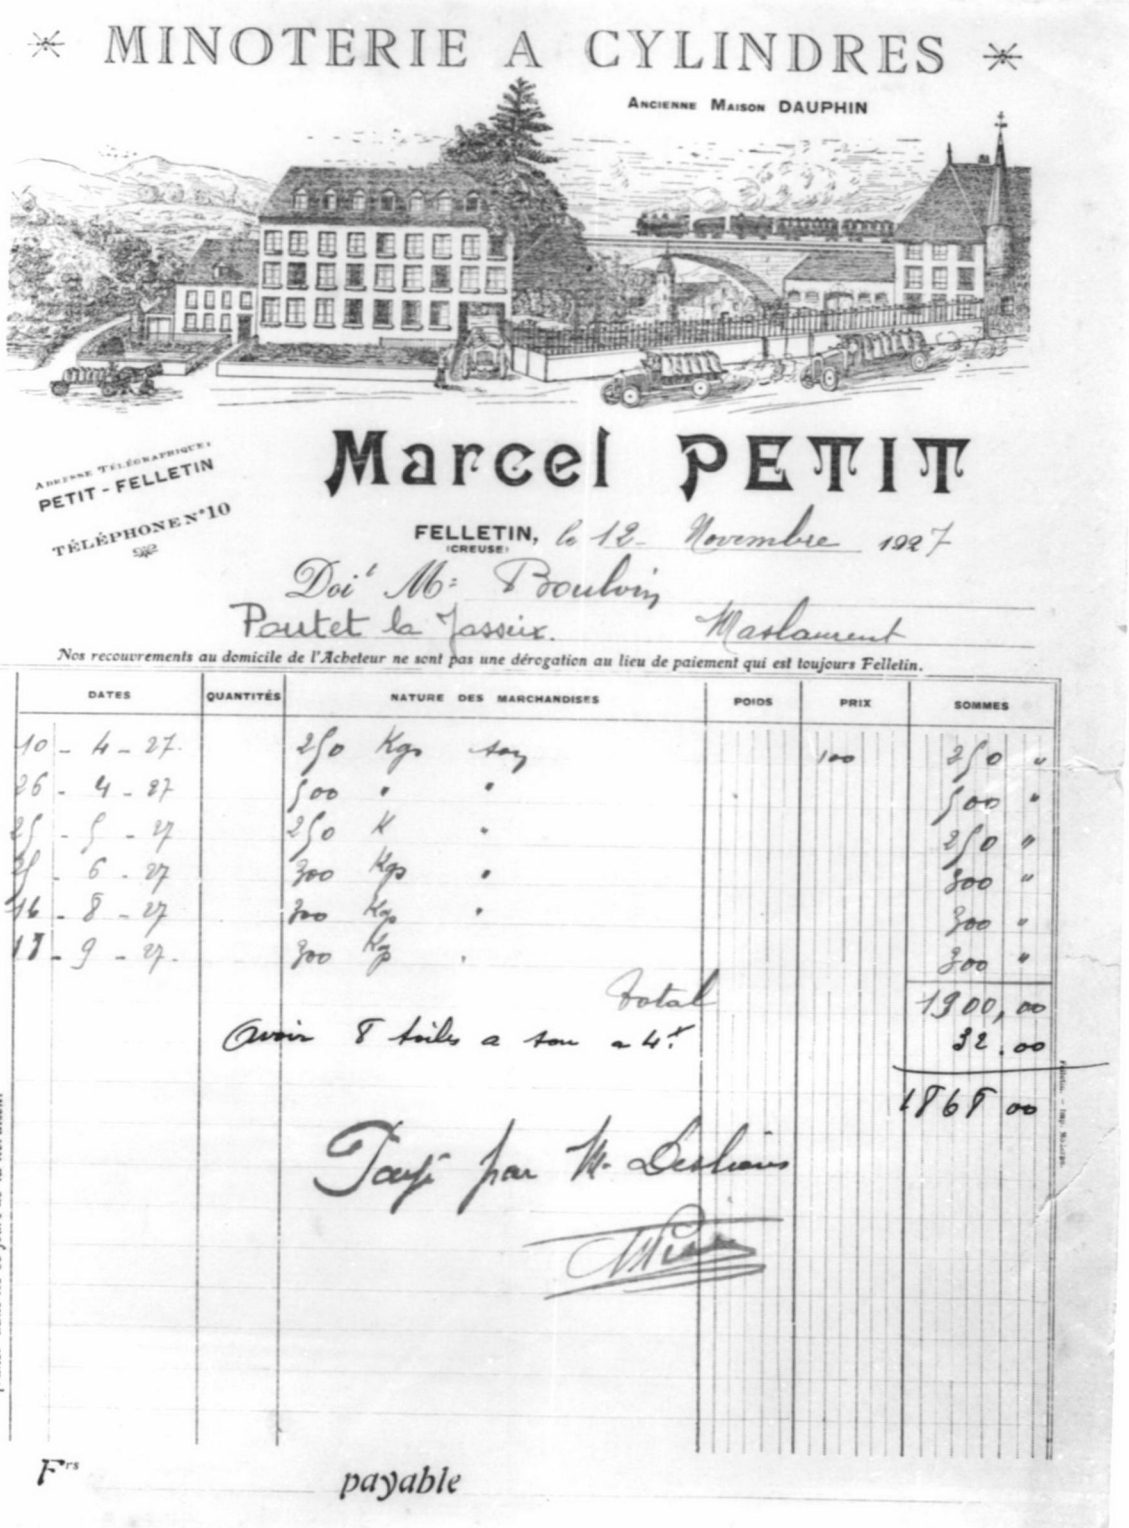 MINOTERIE A CYLINDRES
ANCIENNE MAISON DAUPHIN
Marcel PETIT
ADRESSE TÉLÉGRAPHIQUE:
PETIT-FELLETIN
TÉLÉPHONE N°10
FELLETIN, le 12 Novembre 1927
(CREUSE)
Doit M:
Pautet la Jasseix. Maslaurent
Nos recouvrements au domicile de l'Acheteur ne sont pas une dérogation au lieu de paiement qui est toujours Felletin.
DATES QUANTITÉS NATURE DES MARCHANDISES POIDS PRIX SOMMES
10 - 4 - 27. 250 Kgs son 100 250 "
26 - 4 - 27 500 " " 500 "
25 - 5 - 27 250 K " 250 "
6 - 27 300 Kgs " 300 "
16 - 8 - 27 300 Kgs " 300 "
9 - 27. 300 Kgs " 300 "
total 1900,00
Avoir 8 toiles a son a 4f 32.00
1868 00
Payé par M.
Frs payable